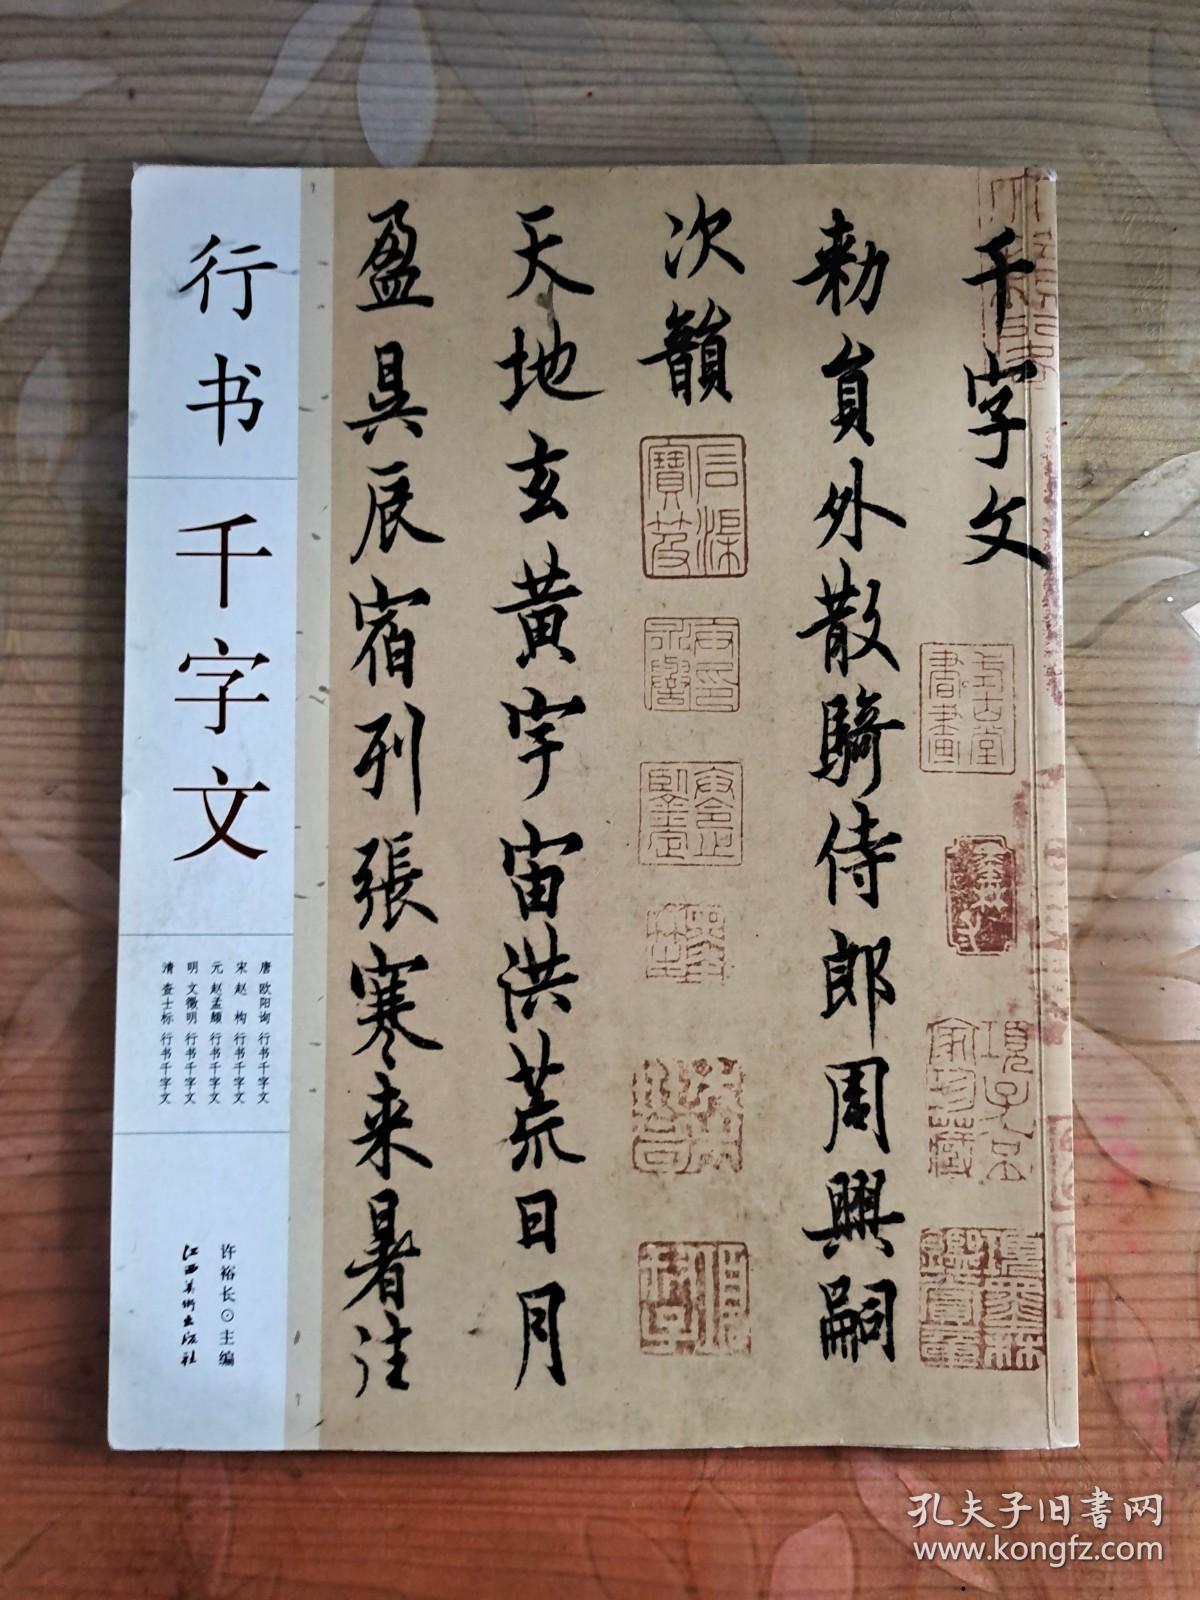 千字文
敕員外散騎侍郎周興嗣
次韻
天地玄黃宇宙洪荒日月
盈昃辰宿列張寒来暑往
行书
千字文
唐 欧阳询 行书千字文
宋 赵构 行书千字文
元 赵孟頫 行书千字文
明 文徵明 行书千字文
清 查士标 行书千字文
许裕长⊙主编
江西美術出版社
孔夫子旧书网
www.kongfz.com